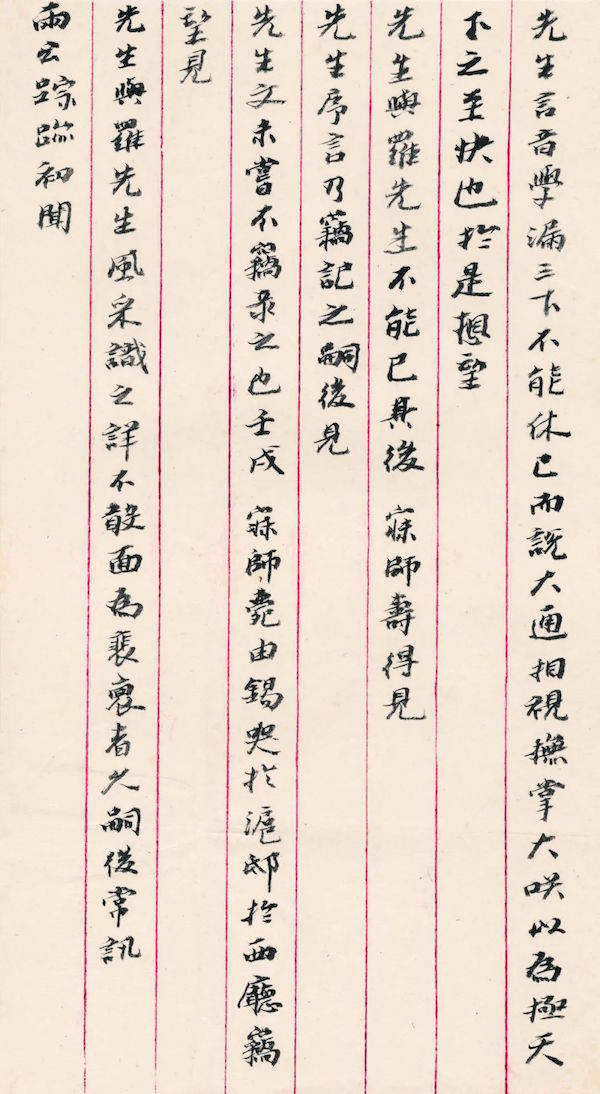 先生言音學漏三下不能休已而說大通相視撫掌大咲以為極天
下之至快也於是想望
先生與羅先生不能已其後 寐師壽得見
先生序言乃竊記之嗣後見
先生文未嘗不竊录之也壬戌 寐師薨由錫哭於滬邸於西廳竊
望見
先生與羅先生風采識之詳不敢面為裴裒者久嗣後常訊
兩公踪跡初聞